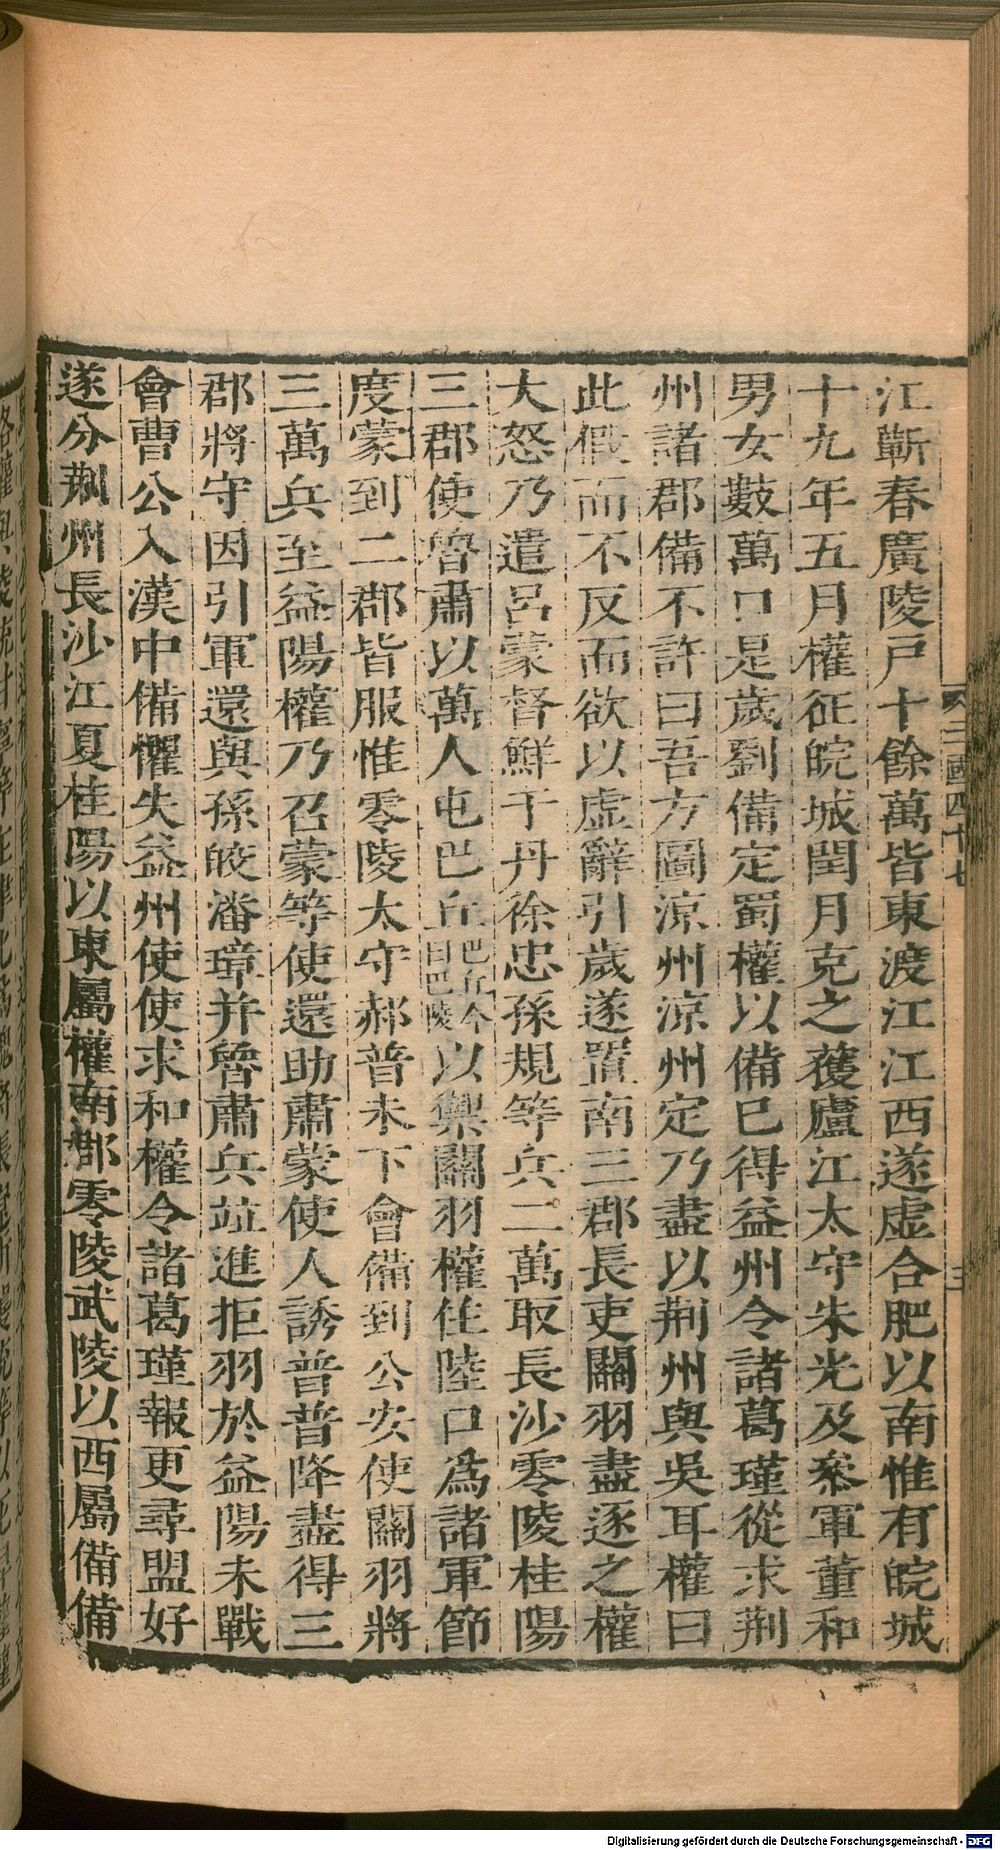 江蘄春廣陵戶十餘萬皆東渡江江西遂虛合肥以南惟有皖城
十九年五月權征皖城閏月克之獲廬江太守朱光及叅軍董和
男女數萬口是歲劉備定蜀權以備已得益州令諸葛瑾從求荆
州諸郡備不許曰吾方圖涼州涼州定乃盡以荆州與吳耳權曰
此假而不反而欲以虛辭引歲遂置南三郡長吏關羽盡逐之權
大怒乃遣呂蒙督鮮于丹徐忠孫規等兵二萬取長沙零陵桂陽
三郡使魯肅以萬人屯巴丘巴丘今曰巴陵以禦關羽權住陸口爲諸軍節
度蒙到二郡皆服惟零陵太守郝普未下會備到公安使關羽將
三萬兵至益陽權乃召蒙等使還助肅蒙使人誘普普降盡得三
郡將守因引軍還與孫皎潘璋并魯肅兵竝進拒羽於益陽未戰
會曹公入漢中備懼失益州使使求和權令諸葛瑾報更尋盟好
遂分荆州長沙江夏桂陽以東屬權南郡零陵武陵以西屬備備
三國四十七
三
Digitalisierung gefördert durch die Deutsche Forschungsgemeinschaft - DFG